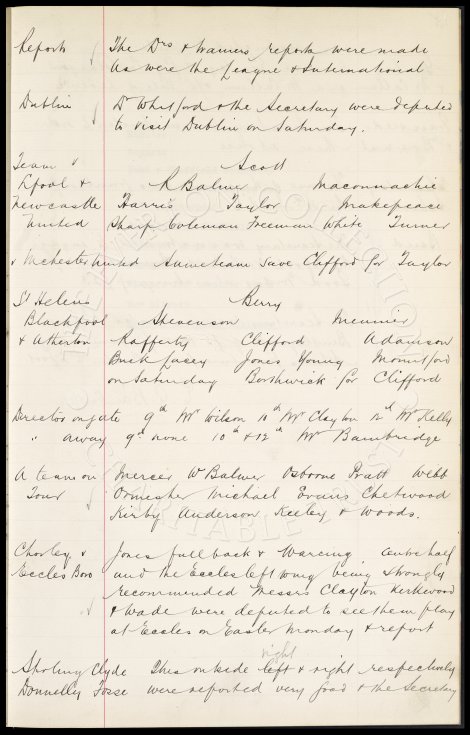 Reports The Drs & trainers reports were made
as were the League & International
Dublin Dr Whitford & the Secretary were deputed
to visit Dublin on Saturday.
Team v Scott
L'pool & R Balmer Maconnachie
Newcastle Harris Taylor Makepeace
United Sharp Coleman Freeman White Turner
v M'chester United Same team save Clifford for Taylor
St Helens Berry
Blackpool Stevenson Meunier
& Atherton Rafferty Clifford Adamson
Buck Lacey Jones Young Mountford
on Saturday Borthwick for Clifford
Directors on gate 9th Mr Wilson 10th Mr Clayton 12th Mr Kelly
" away 9th none 10th & 12th Mr Bainbridge
A team on Mercer W Balmer Osborne Pratt Webb
Tour Ormesher Michael Evans Chetwood
Kirby Anderson Keeley & Woods.
Chorley v Jones full back & Warcing centre half
Eccles Boro and the Eccles left wing being strongly
recommended Messrs Clayton Kirkwood
& Wade were deputed to see them play
at Eccles on Easter Monday & report
right
Clyde The outside left & right respectively
Donnelly Fosse were reported very good & the Secretary